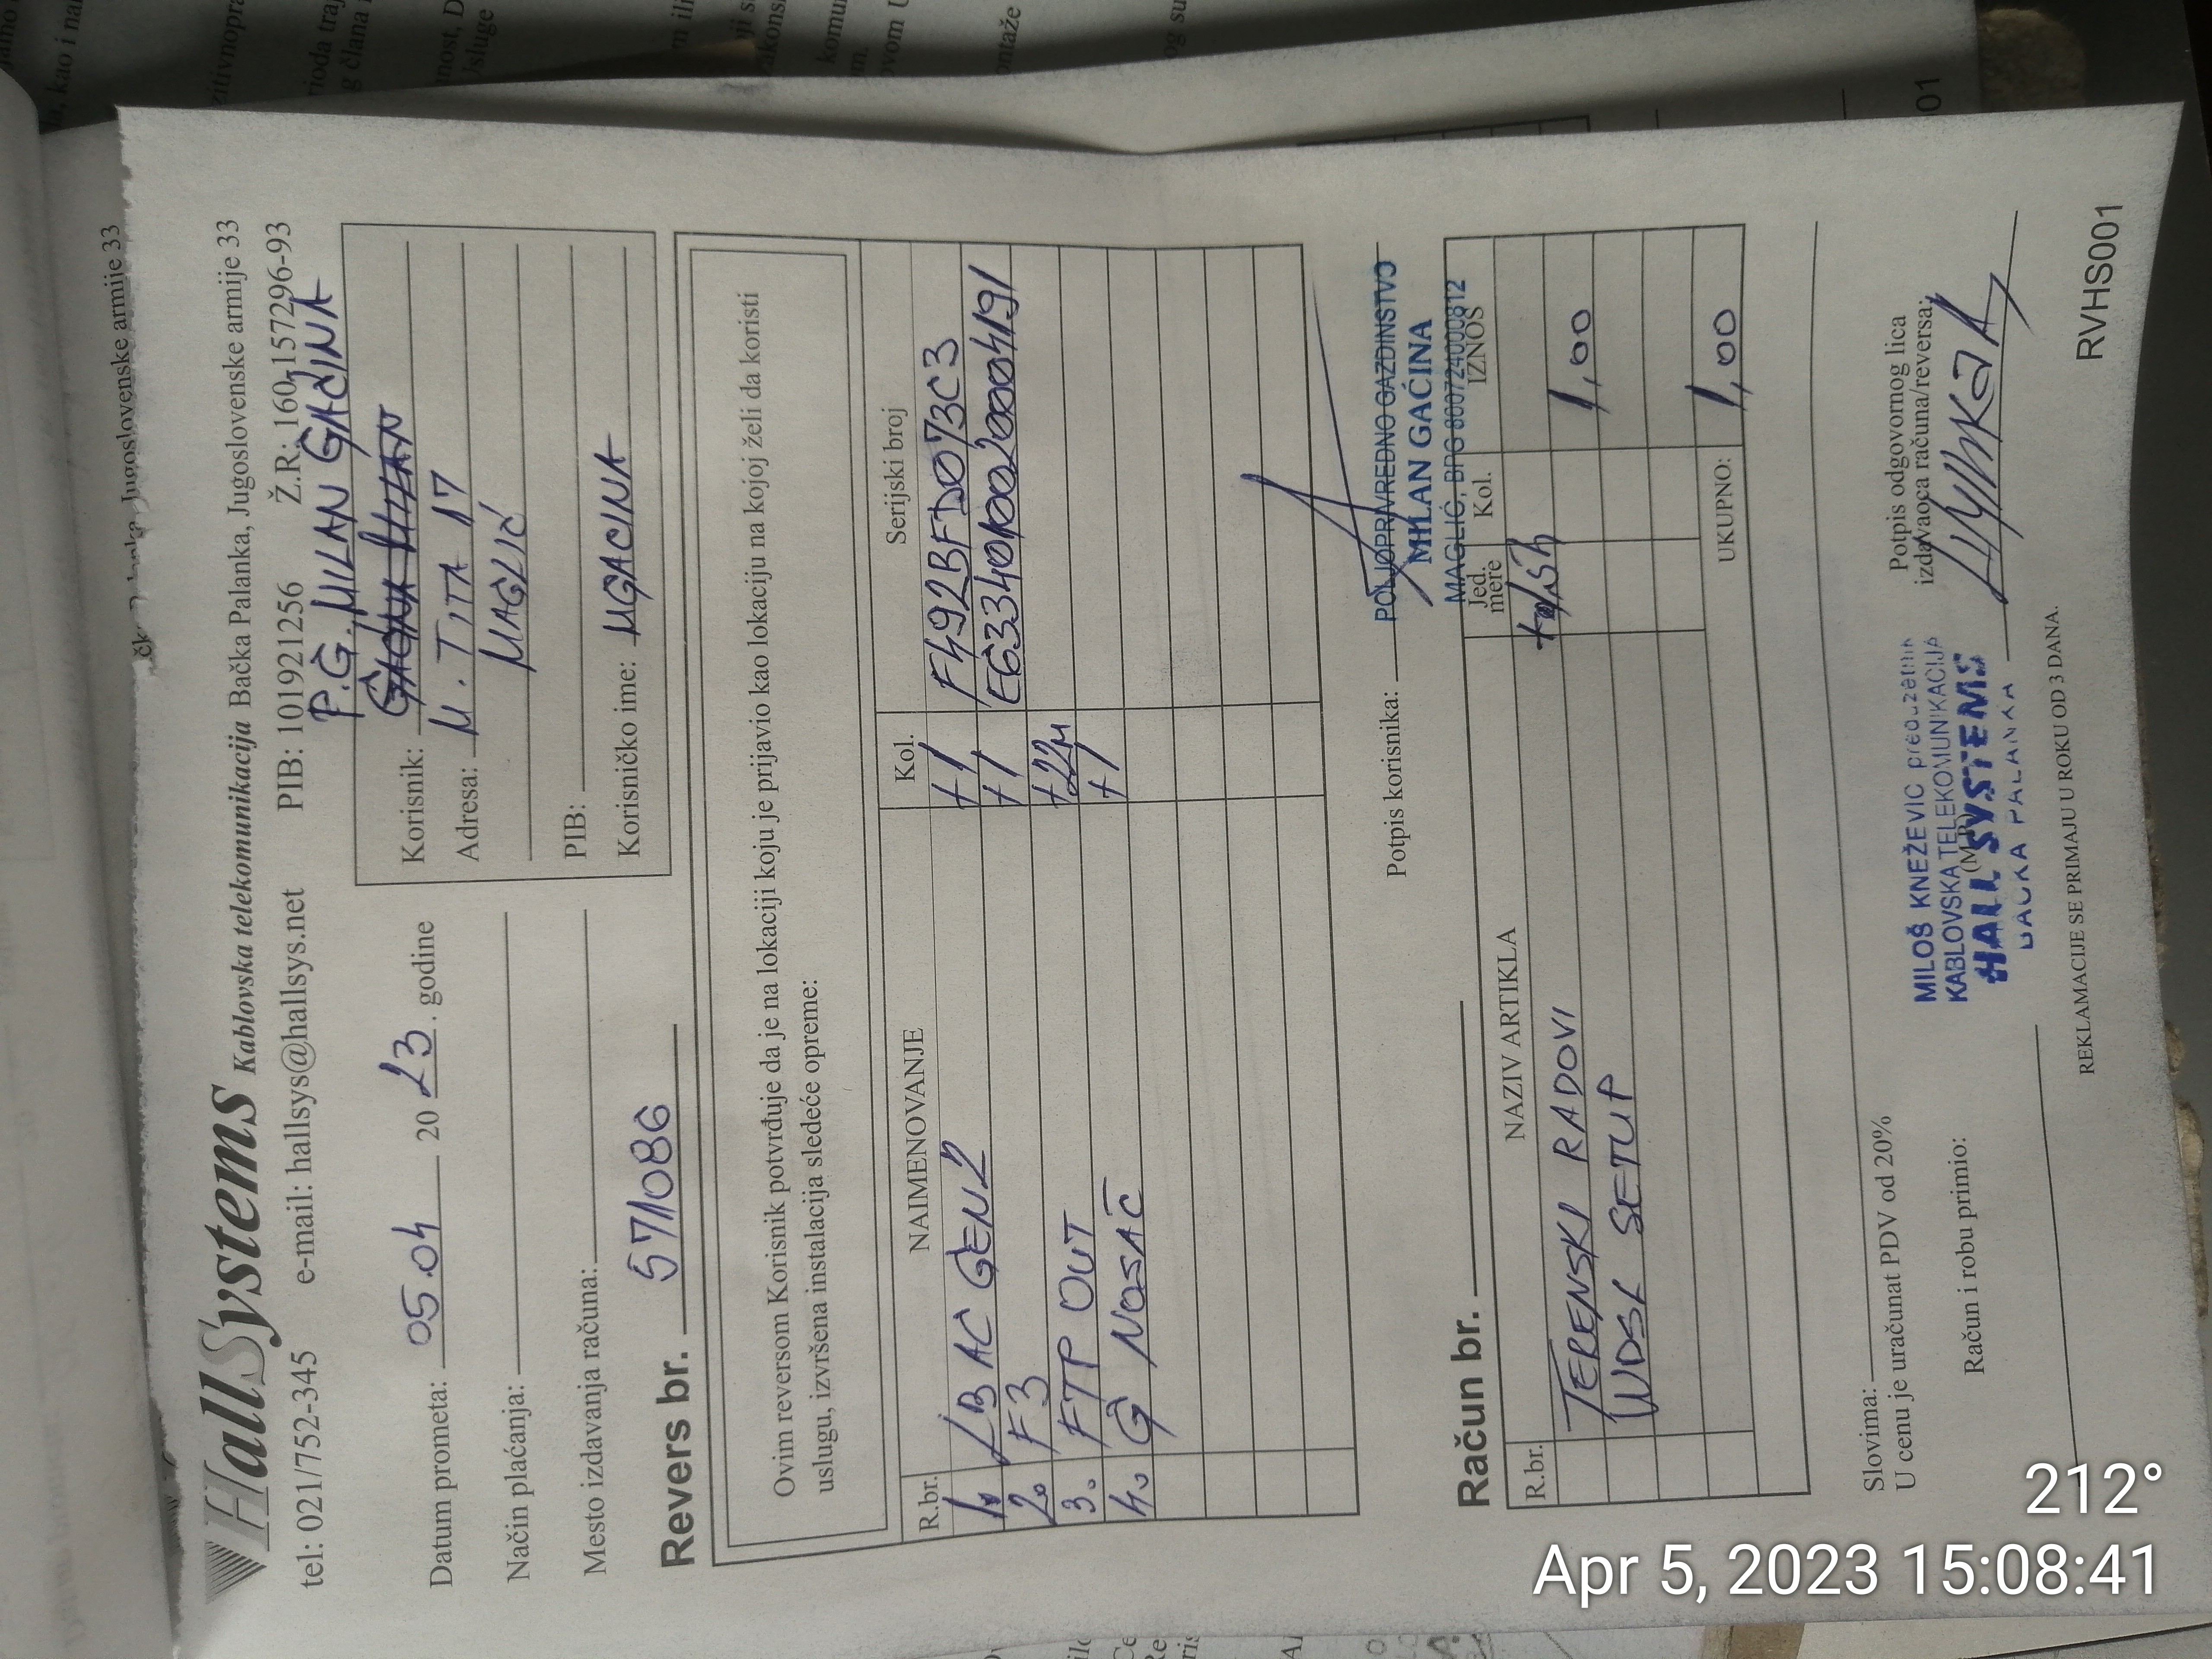 HallSystems Kablovska telekomunikacija Bačka Palanka, Jugoslovenske armije 33
tel: 021/752-345 e-mail: hallsys@hallsys.net PIB: 101921256 Ž.R: 160-157296-93
P.G. MILAN GAĆINA
Datum prometa: 05.04 2023. godine
Korisnik:
Adresa: M. TITA 17
MAGLIĆ
Način plaćanja:
PIB:
Mesto izdavanja računa:
Korisničko ime: MGACINA
Revers br. 571086
Ovim reversom Korisnik potvrđuje da je na lokaciji koju je prijavio kao lokaciju na kojoj želi da koristi
uslugu, izvršena instalacija sledeće opreme:
R.br. NAIMENOVANJE Kol. Serijski broj
1. LB AC GEN2 +1 F492BFD073C3
2. F3 +1 E6334010020004191
3. FTP OUT +22M
4. G NOSAČ +1
Potpis korisnika:
POLJOPRIVREDNO GAZDINSTVO
MILAN GAĆINA
MAGLIĆ, BPG 800724000812
Račun br.
R.br. NAZIV ARTIKLA Jed. mere Kol. IZNOS
TERENSKI RADOVI 1,00
WDSL SETUP
UKUPNO: 1,00
Slovima:
U cenu je uračunat PDV od 20%
Račun i robu primio:
Potpis odgovornog lica
izdavaoca računa/reversa:
(M.P.)
MILOŠ KNEŽEVIĆ preduzetnik
KABLOVSKA TELEKOMUNIKACIJA
HALL SYSTEMS
BAČKA PALANKA
REKLAMACIJE SE PRIMAJU U ROKU OD 3 DANA.
RVHS001
Jugoslovenske armije 33
212°
Apr 5, 2023 15:08:41